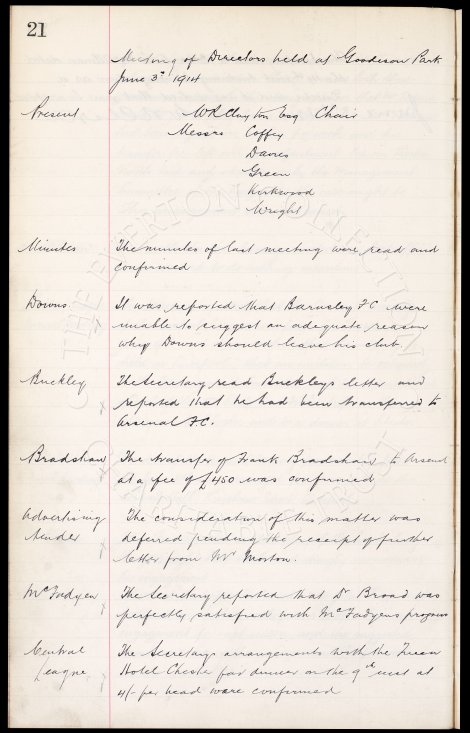 21
Meeting of Directors held at Goodison Park
June 3rd 1914
Present W R Clayton Esq Chair
Messrs Coffey
Davies
Green
Kirkwood
Wright
Minutes The minutes of last meeting were read and
confirmed
Downs It was reported that Barnsley FC were
unable to suggest an adequate reason
why Downs should leave his club.
Buckley The Secretary read Buckleys letter and
reported that he had been transferred to
Arsenal FC.
Bradshaw The transfer of Frank Bradshaw to Arsenal
at a fee of £450 was confirmed
Advertising The consideration of this matter was
tender deferred pending the receipt of further
letter from Mr Morton.
McFadyen The Secretary reported that Dr Broad was
perfectly satisfied with McFadyens progress
Central The Secretarys arrangements with the Queen
League Hotel Chester for dinner on the 9th inst at
4/- per head were confirmed
THE EVERTON COLLECTION
CHARITABLE TRUST